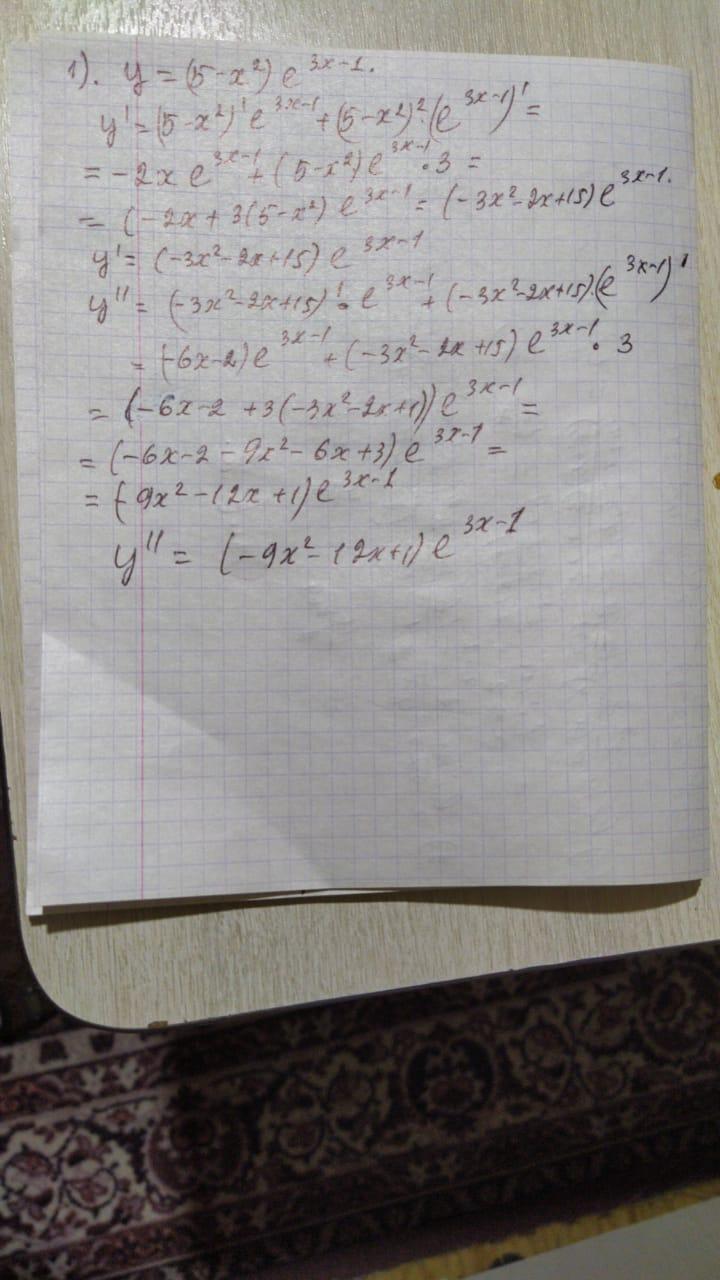 1). y = (5-x²) e^{3x-1}.
y' = (5-x²)' e^{3x-1} + (5-x²)²·(e^{3x-1})' =
= -2x e^{3x-1} + (5-x²) e^{3x-1} · 3 =
= (-2x + 3(5-x²) e^{3x-1} = (-3x²-2x+15) e^{3x-1}.
y' = (-3x²-2x+15) e^{3x-1}
y'' = (-3x²-2x+15)' · e^{3x-1} + (-3x²-2x+15)·(e^{3x-1})'
= (-6x-2) e^{3x-1} + (-3x²-2x+15) e^{3x-1} · 3
= (-6x-2 +3(-3x²-2x+1)) e^{3x-1} =
= (-6x-2 - 9x² - 6x+3) e^{3x-1} =
= (-9x²-12x+1) e^{3x-1}
y'' = (-9x²-12x+1) e^{3x-1}